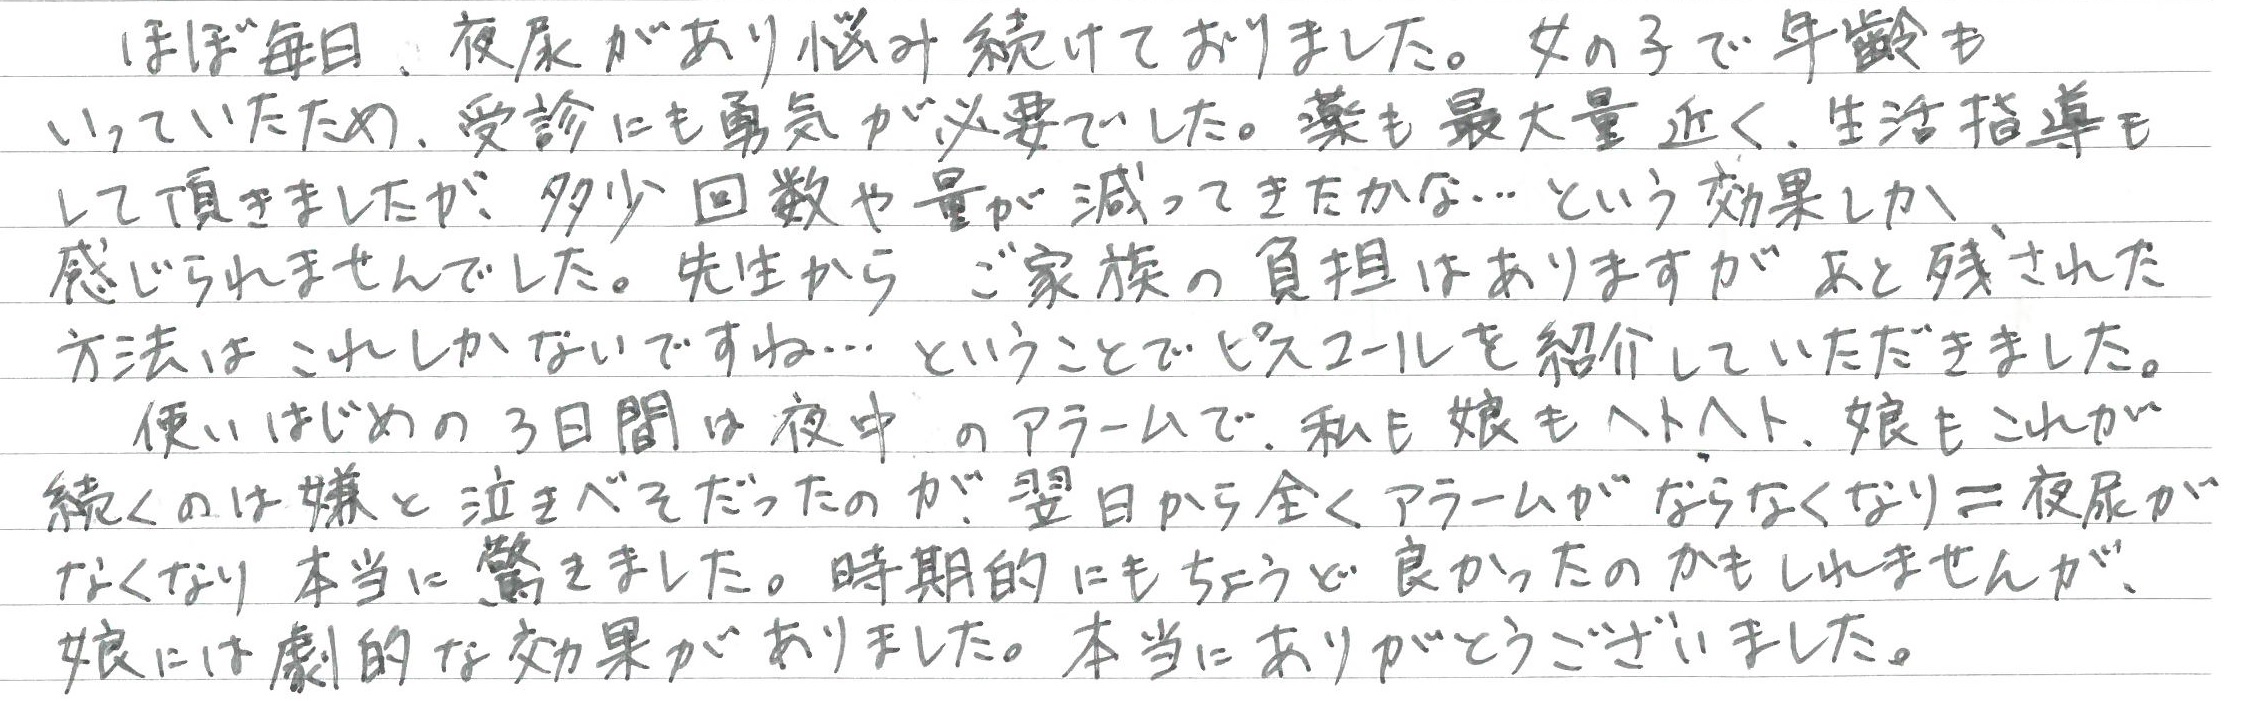 ほぼ毎日、夜尿があり悩み続けておりました。女の子で年齢も
いっていたため、受診にも勇気が必要でした。薬も最大量近く、生活指導も
して頂きましたが、多少回数や量が減ってきたかな…という効果しか
感じられませんでした。先生からご家族の負担はありますがあと残された
方法はこれしかないですね…ということでピスコールを紹介していただきました。
使いはじめの3日間は夜中のアラームで、私も娘もヘトヘト、娘もこれが
続くのは嫌と泣きべそだったのが、翌日から全くアラームがならなくなり=夜尿が
なくなり本当に驚きました。時期的にもちょうど良かったのかもしれませんが、
娘には劇的な効果がありました。本当にありがとうございました。